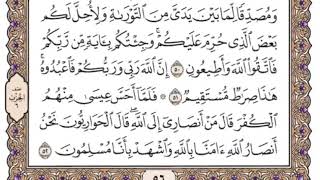 وَمُصَدِّقًا لِّمَا بَيْنَ يَدَيَّ مِنَ التَّوْرَىٰةِ وَلِأُحِلَّ لَكُم
بَعْضَ الَّذِي حُرِّمَ عَلَيْكُمْ ۚ وَجِئْتُكُم بِـَٔايَةٍ مِّن رَّبِّكُمْ
فَاتَّقُوا اللَّهَ وَأَطِيعُونِ ۝٥٠ إِنَّ اللَّهَ رَبِّي وَرَبُّكُمْ فَاعْبُدُوهُ ۗ
هَٰذَا صِرَٰطٌ مُّسْتَقِيمٌ ۝٥١ ۞ فَلَمَّا أَحَسَّ عِيسَىٰ مِنْهُمُ
الْكُفْرَ قَالَ مَنْ أَنصَارِي إِلَى اللَّهِ ۖ قَالَ الْحَوَارِيُّونَ نَحْنُ
أَنصَارُ اللَّهِ ءَامَنَّا بِاللَّهِ وَاشْهَدْ بِأَنَّا مُسْلِمُونَ ۝٥٢
الحزب
٦
٥٦